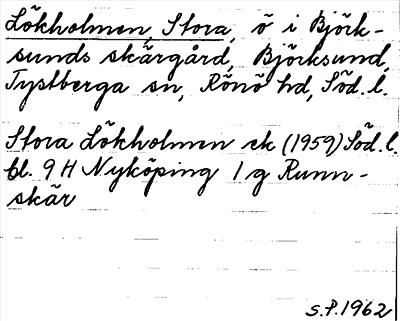 Lökholmen, Stora, ö i Björk-
sunds skärgård, Björksund,
Tystberga sn, Rönö hd, Söd. l.
Stora Lökholmen ek (1959) Söd. l.
bl. 9 H Nyköping 1 g Runn-
skär
S.P. 1962